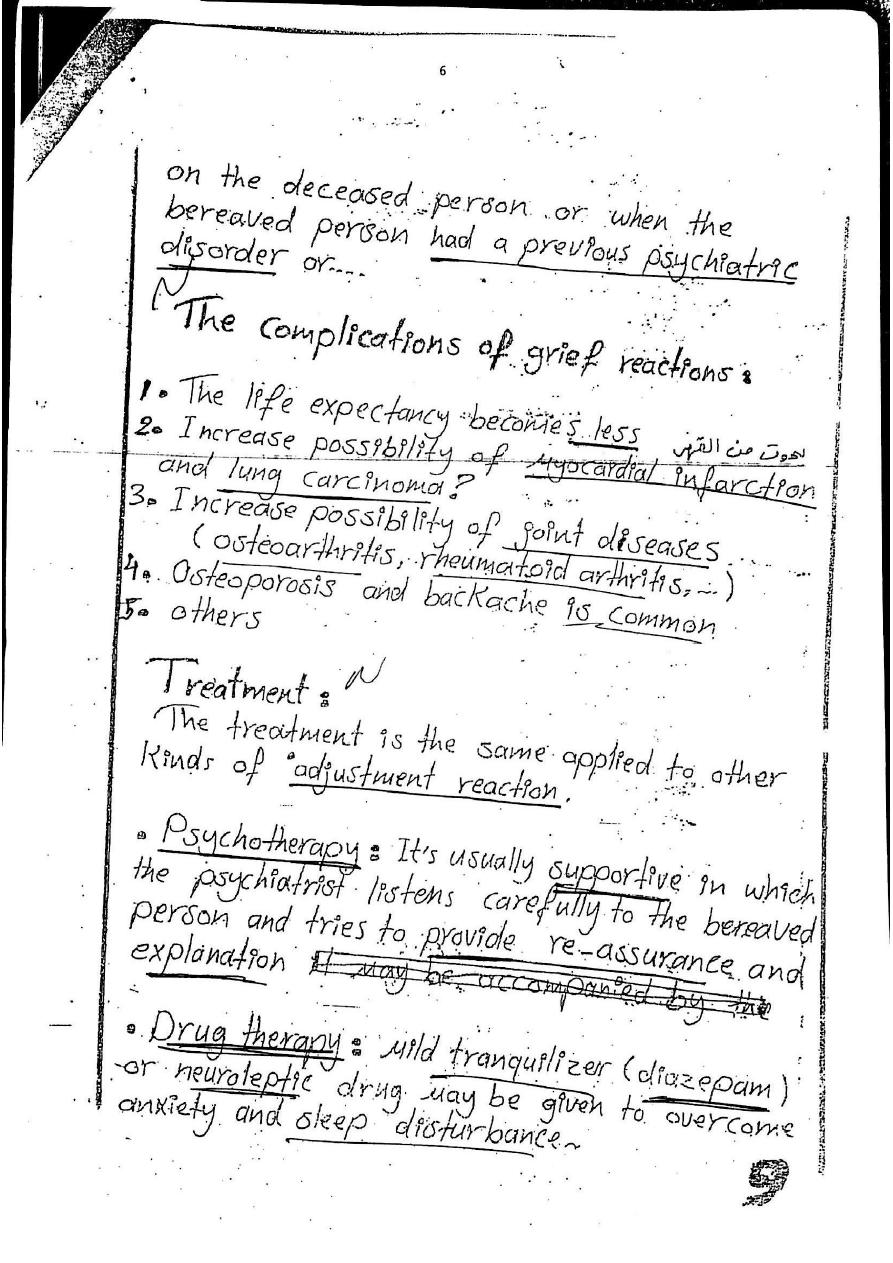 6
on the deceased person or when the
bereaved person had a previous psychiatric
disorder or....
The complications of grief reactions:
1. The life expectancy becomes less
يموت من القهر
2. Increase possibility of Myocardial infarction
and lung carcinoma?
3. Increase possibility of joint diseases
(osteoarthritis, rheumatoid arthritis, ...)
4. Osteoporosis and backache is common
5. others
Treatment:
The treatment is the same applied to other
Kinds of adjustment reaction.
• Psychotherapy: It's usually supportive in which
the psychiatrist listens carefully to the bereaved
person and tries to provide re-assurance and
explanation It may be accompanied by the
• Drug therapy: Mild tranquilizer (diazepam)
or neuroleptic drug may be given to overcome
anxiety and sleep disturbance~
9